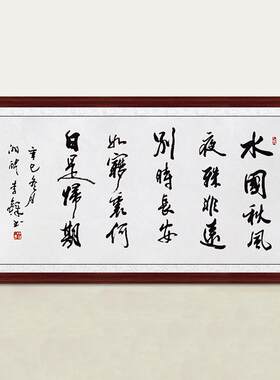 水國秋風
夜殊非遠
別時長安
如夢裏何
日是歸期
辛巳冬月
李鐸书